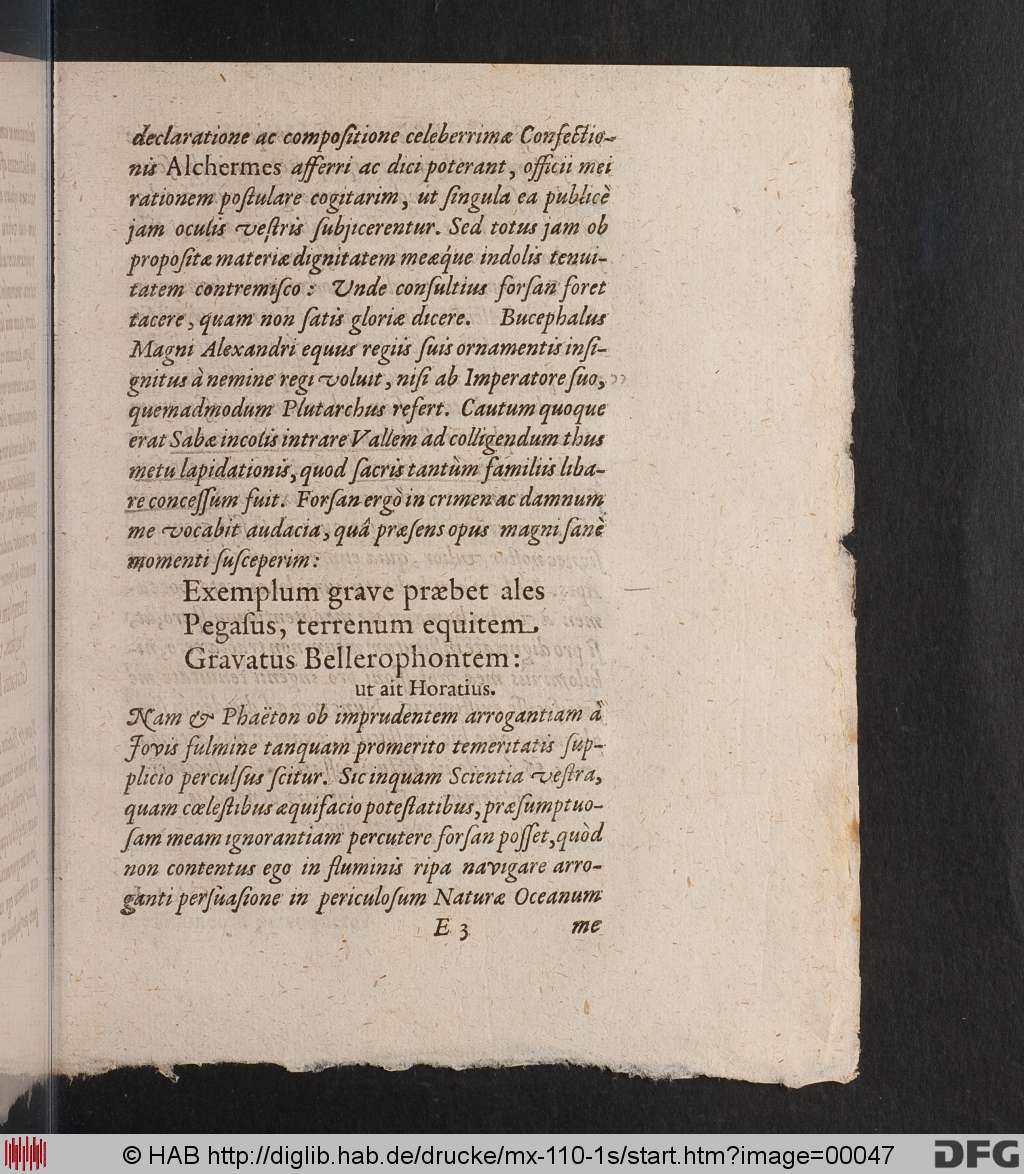 declaratione ac compositione celeberrimæ Confectio-
nis Alchermes afferri ac dici poterant, officii mei
rationem postulare cogitarim, ut singula ea publicè
jam oculis vestris subjicerentur. Sed totus jam ob
propositæ materiæ dignitatem meæq́ue indolis tenui-
tatem contremisco: Unde consultius forsan foret
tacere, quam non satis gloriæ dicere. Bucephalus
Magni Alexandri equus regiis suis ornamentis insi-
gnitus à nemine regi voluit, nisi ab Imperatore suo,
quemadmodum Plutarchus refert. Cautum quoque
erat Sabæ incolis intrare Vallem ad colligendum thus
metu lapidationis, quod sacris tantùm familiis liba-
re concessum fuit. Forsan ergò in crimen ac damnum
me vocabit audacia, quâ præsens opus magni sanè
momenti susceperim:
Exemplum grave præbet ales
Pegasus, terrenum equitem
Gravatus Bellerophontem:
ut ait Horatius.
Nam & Phaëton ob imprudentem arrogantiam à
Jovis fulmine tanquam promerito temeritatis sup-
plicio perculsus scitur. Sic inquam Scientia vestra,
quam cœlestibus æquifacio potestatibus, præsumptuo-
sam meam ignorantiam percutere forsan posset, quòd
non contentus ego in fluminis ripa navigare arro-
ganti persuasione in periculosum Naturæ Oceanum
E 3 me
© HAB http://diglib.hab.de/drucke/mx-110-1s/start.htm?image=00047
DFG